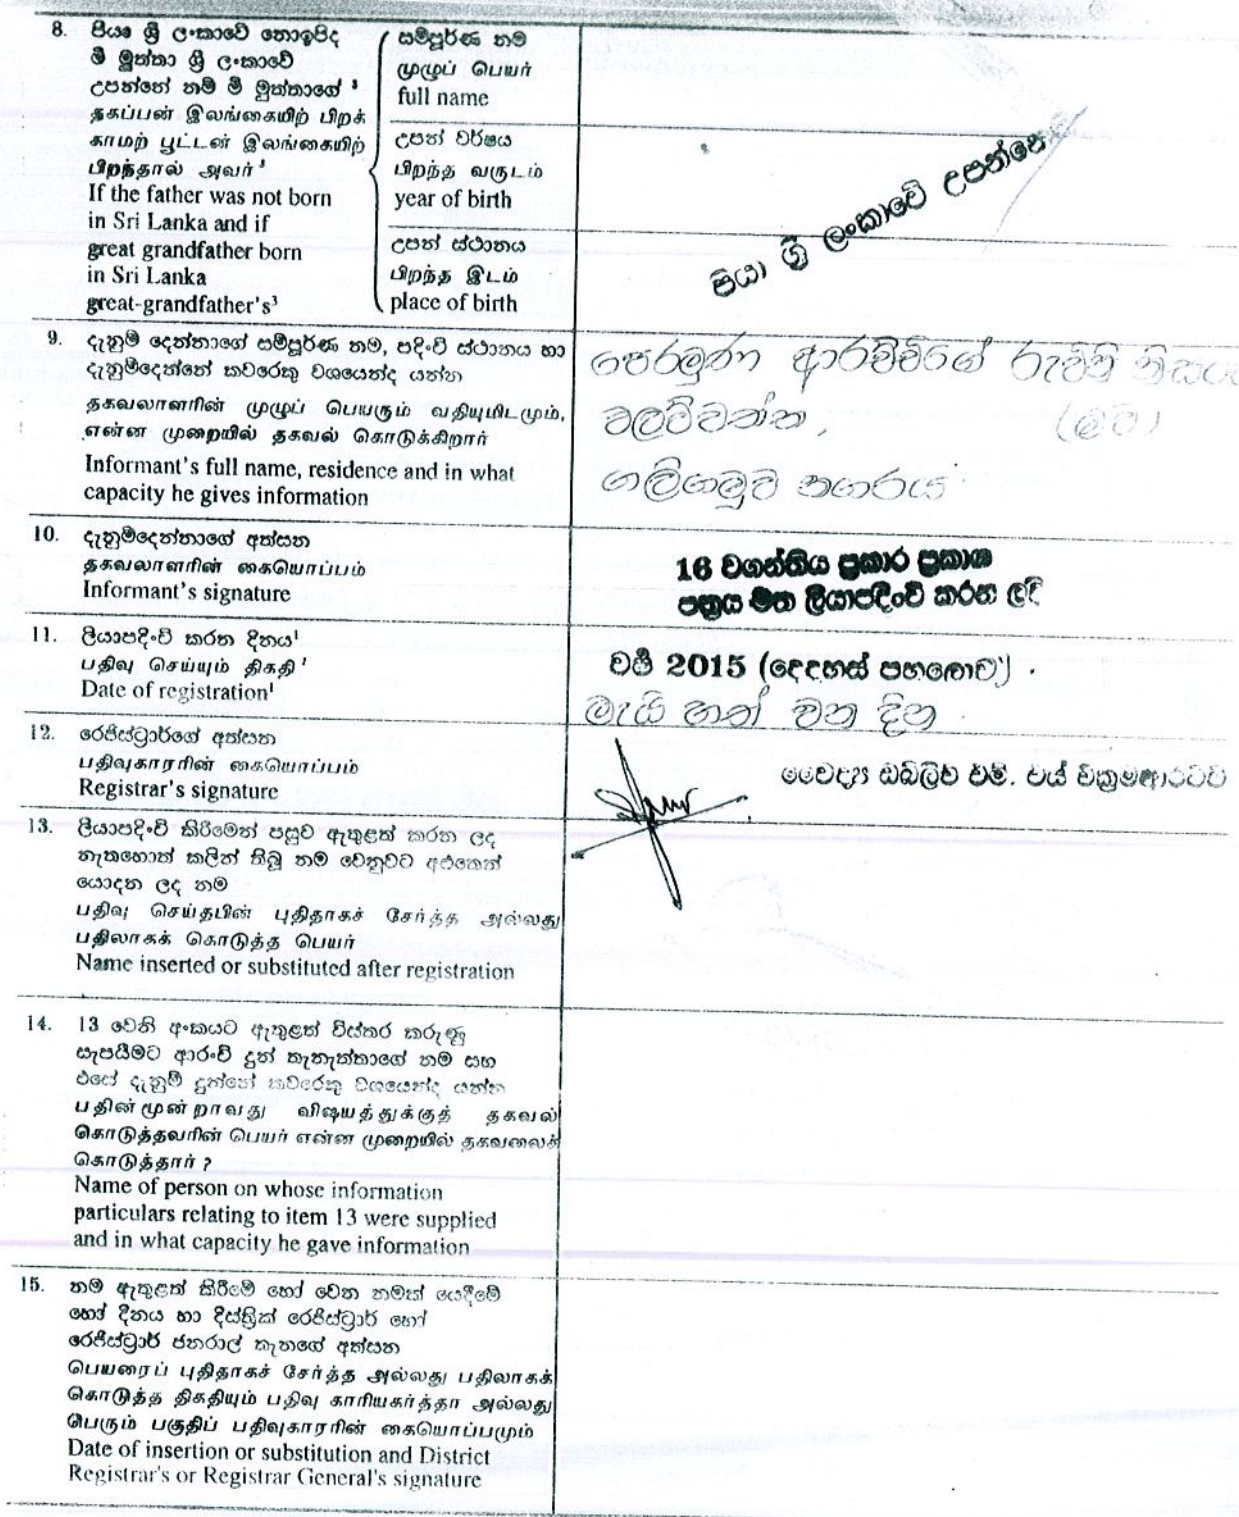 8. පියා ශ්‍රී ලංකාවේ නොඉපිද
මී මුත්තා ශ්‍රී ලංකාවේ
උපන්නේ නම් මී මුත්තාගේ ³
தகப்பன் இலங்கையிற் பிறக்
காமற் பூட்டன் இலங்கையிற்
பிறந்தால் அவர் ³
If the father was not born
in Sri Lanka and if
great grandfather born
in Sri Lanka
great-grandfather's³
සම්පූර්ණ නම
முழுப் பெயர்
full name
උපන් වර්ෂය
பிறந்த வருடம்
year of birth
උපන් ස්ථානය
பிறந்த இடம்
place of birth
පියා ශ්‍රී ලංකාවේ උපන්නෙ
9. දැනුම් දෙන්නාගේ සම්පූර්ණ නම, පදිංචි ස්ථානය හා
දැනුම්දෙන්නේ කවරෙකු වශයෙන්ද යන්න
தகவலாளரின் முழுப் பெயரும் வதியுமிடமும்,
என்ன முறையில் தகவல் கொடுக்கிறார்
Informant's full name, residence and in what
capacity he gives information
පෙරමුණ ආරච්චිගේ රුවිනි
වලව්වත්ත, (මව)
ගලිගමුව නගරය
10. දැනුම්දෙන්නාගේ අත්සන
தகவலாளரின் கையொப்பம்
Informant's signature
16 වගන්තිය ප්‍රකාර ප්‍රකාශ
පත්‍රය මත ලියාපදිංචි කරන ලදි
11. ලියාපදිංචි කරන දිනය¹
பதிவு செய்யும் திகதி ¹
Date of registration¹
වර්ෂ 2015 (දෙදහස් පහළොව)
මැයි හත් වන දින
12. රෙජිස්ට්‍රාර්ගේ අත්සන
பதிவுகாரரின் கையொப்பம்
Registrar's signature
වෛද්‍ය ඩබ්ලිව් එම්. එස් වික්‍රමආරච්චි
13. ලියාපදිංචි කිරීමෙන් පසුව ඇතුළත් කරන ලද
නැතහොත් කලින් තිබූ නම වෙනුවට අළුතෙන්
යොදන ලද නම
பதிவு செய்தபின் புதிதாகச் சேர்த்த அல்லது
பதிலாகக் கொடுத்த பெயர்
Name inserted or substituted after registration
14. 13 වෙනි අංකයට ඇතුළත් විස්තර කරුණු
සැපයීමට ආරංචි දුන් තැනැත්තාගේ නම සහ
එසේ දැනුම් දුන්නේ කවරෙකු වශයෙන්ද යන්න
பதின்மூன்றாவது விஷயத்துக்குத் தகவல்
கொடுத்தவரின் பெயர் என்ன முறையில் தகவலைக்
கொடுத்தார் ?
Name of person on whose information
particulars relating to item 13 were supplied
and in what capacity he gave information
15. නම ඇතුළත් කිරීමේ හෝ වෙන නමක් යෙදීමේ
හෝ දිනය හා දිස්ත්‍රික් රෙජිස්ට්‍රාර් හෝ
රෙජිස්ට්‍රාර් ජනරාල් තැනගේ අත්සන
பெயரைப் புதிதாகச் சேர்த்த அல்லது பதிலாகக்
கொடுத்த திகதியும் பதிவு காரியகர்த்தா அல்லது
பெரும் பகுதிப் பதிவுகாரரின் கையொப்பமும்
Date of insertion or substitution and District
Registrar's or Registrar General's signature